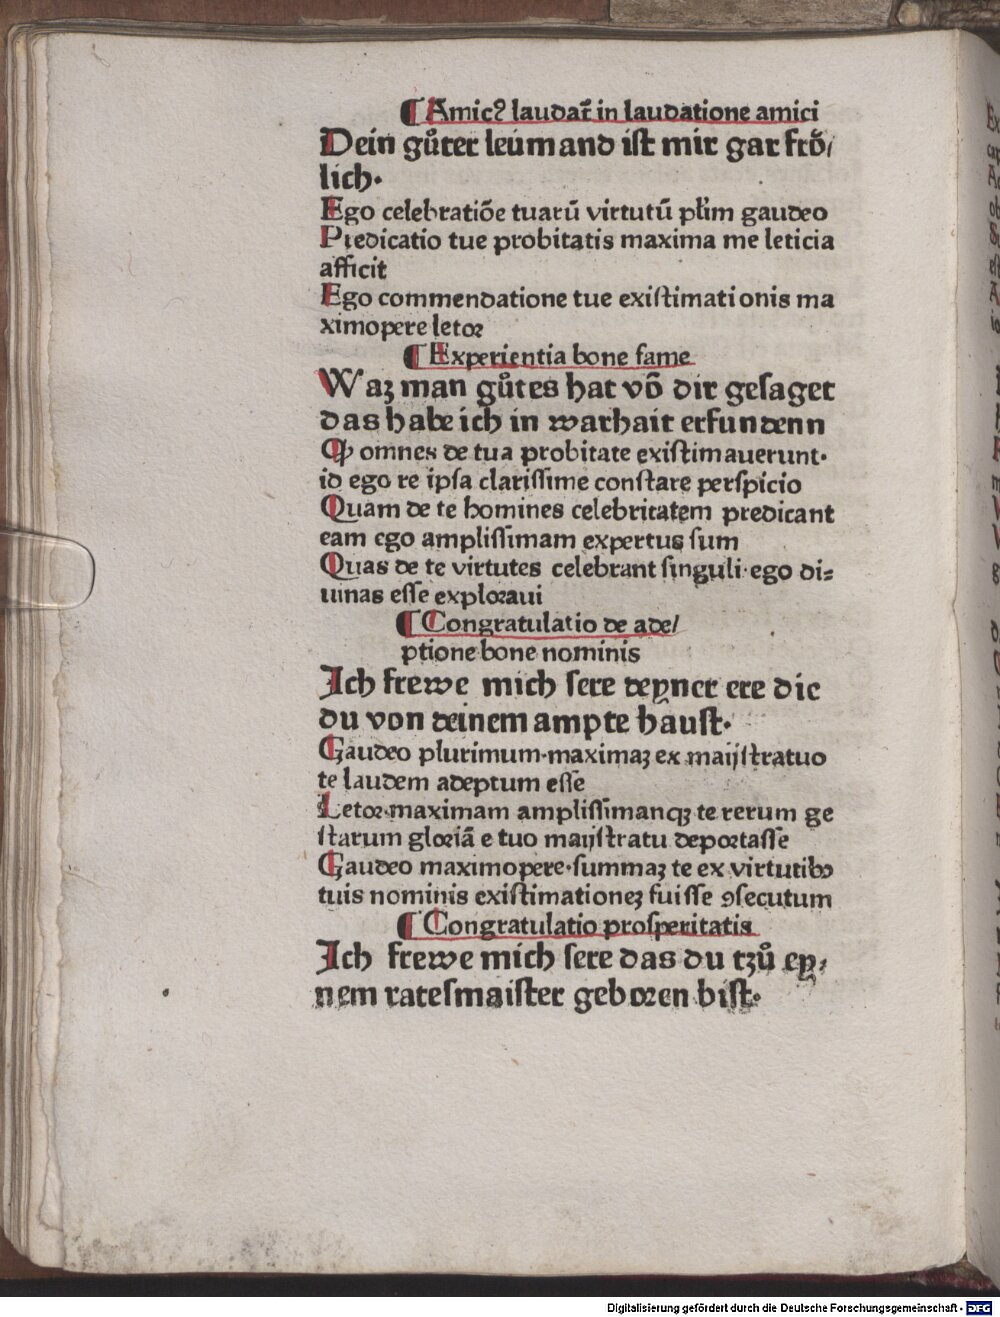 ¶ Amicꝰ laudat᷑ in laudatione amici
Dein gůter leumand ist mir gar frö/
lich.
Ego celebratiõe tuarũ virtutũ plr̃im gaudeo
Predicatio tue probitatis maxima me leticia
afficit
Ego commendatione tue existimationis ma
ximopere letor
¶ Experientia bone fame
Waz man gůtes hat võ dir gesaget
das habe ich in warhait erfundenn
Ꝙ omnes de tua probitate existimauerunt.
id ego re ipsa clarissime constare perspicio
Quam de te homines celebritatem predicant
eam ego amplissimam expertus sum
Quas de te virtutes celebrant singuli.ego di=
uinas esse exploraui
¶ Congratulatio de ade/
ptione bone nominis
Ich frewe mich sere deyner ere die
du von deinem ampte haust.
Gaudeo plurimum.maximaʒ ex maijstratuo
te laudem adeptum esse
Letor.maximam amplissimanqʒ te rerum ge
starum gloriã e tuo maijstratu deportasse
Gaudeo maximopere.summaʒ te ex virtutibꝰ
tuis nominis existimationeʒ fuisse ꝯsecutum
¶ Congratulatio prosperitatis
Ich frewe mich sere das du tzů ey/
nem ratesmaister geboren bist.
Digitalisierung gefördert durch die Deutsche Forschungsgemeinschaft - DFG